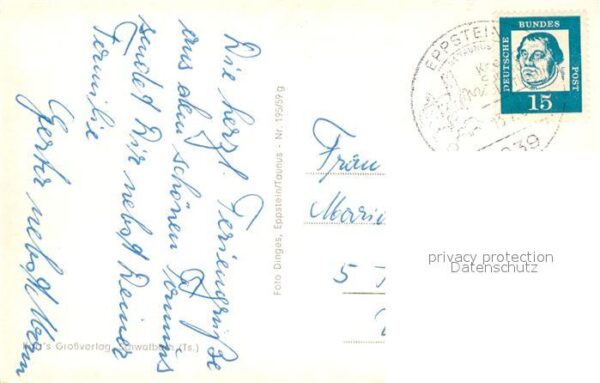 Die herzl. Feriengrüße
aus dem schönen Taunus
sendet Dir nebst Deiner
Familie
Gerta nebst Mann
Foto Dinges, Eppstein/Taunus - Nr. 195/59 g
Großverlag, Schwalbach (Ts.)
EPPSTEIN
DEUTSCHE
BUNDES
POST
15
Frau
5
privacy protection
Datenschutz